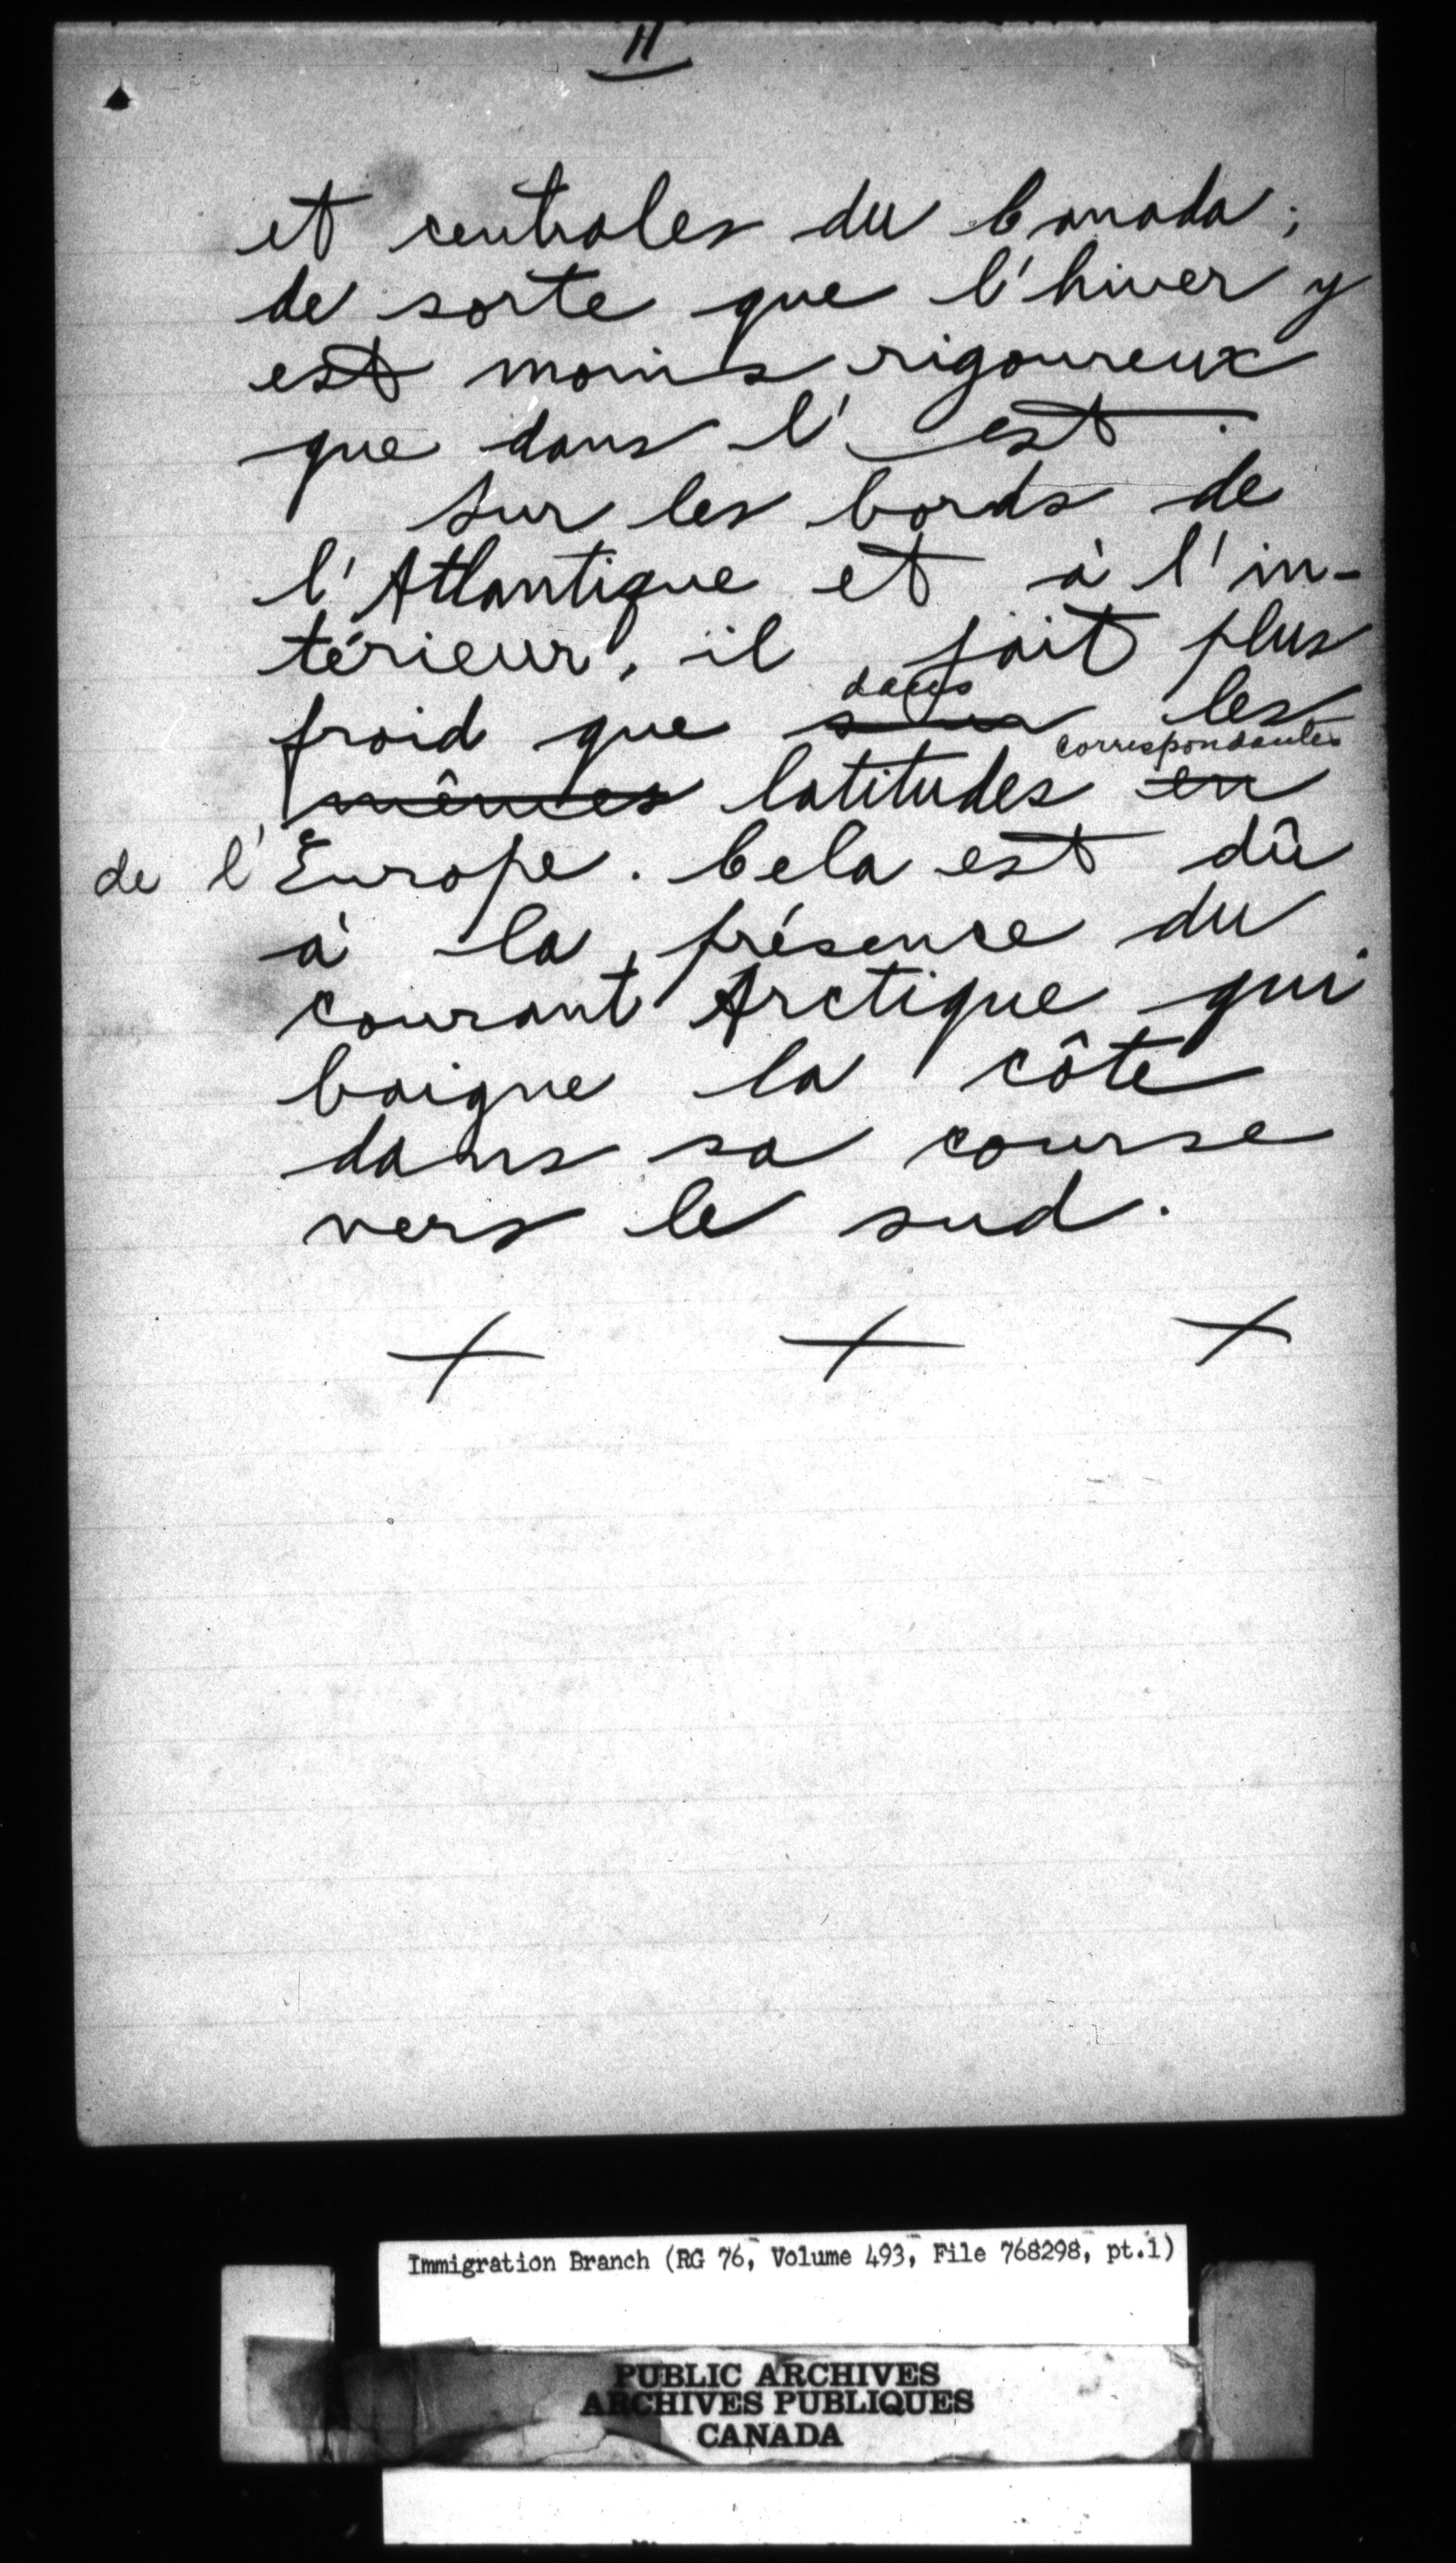 11
et centrales du Canada ;
de sorte que l'hiver y
est moins rigoureux
que dans l'est.
Sur les bords de
l'Atlantique et à l'in-
térieur, il fait plus
dans
froid que sur les
correspondantes
mêmes latitudes en
de l'Europe. Cela est dû
à la présence du
courant Arctique qui
baigne la côte
dans sa course
vers le sud.
+ + +
Immigration Branch (RG 76, Volume 493, File 768298, pt.1)
PUBLIC ARCHIVES
ARCHIVES PUBLIQUES
CANADA